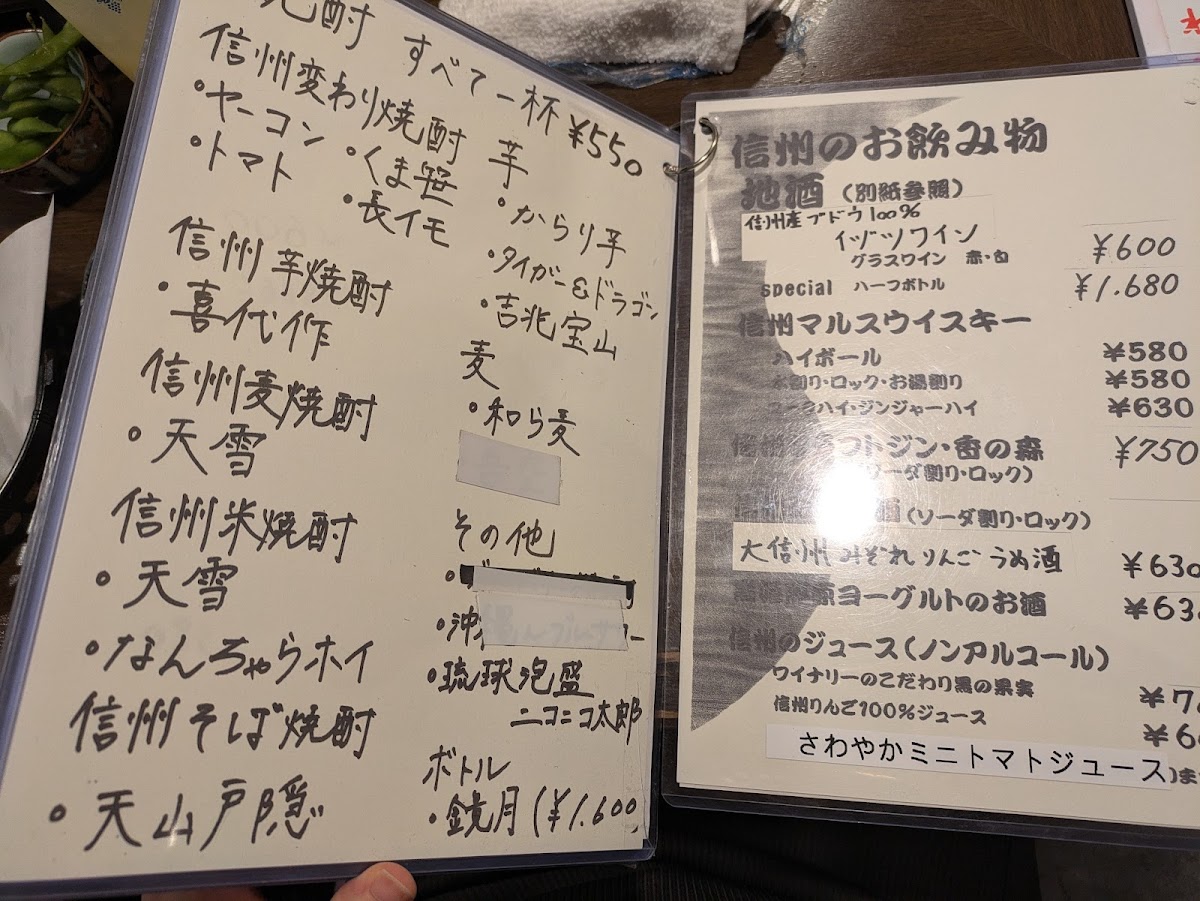 焼酎 すべて一杯¥550
信州変わり焼酎
・ヤーコン ・くま笹
・トマト ・長イモ
信州芋焼酎
・喜代作
信州麦焼酎
・天雪
信州米焼酎
・天雪
・なんちゃらホイ
信州そば焼酎
・天山戸隠
芋
・からり芋
・タイガー&ドラゴン
・吉兆宝山
麦
・和ら麦
その他
・琉球泡盛
ニコニコ太郎
ボトル
・鏡月(¥1.600
信州のお飲み物
地酒(別紙参照)
信州産ブドウ100%
イヅツワイン
グラスワイン 赤・白 ¥600
special ハーフボトル ¥1.680
信州マルスウイスキー
ハイボール ¥580
水割り・ロック・お湯割り ¥580
コークハイ・ジンジャーハイ ¥630
トジン・香の森 ¥750
ソーダ割り・ロック)
(ソーダ割り・ロック)
大信州みぞれりんごうめ酒 ¥630
ヨーグルトのお酒 ¥63
信州のジュース(ノンアルコール)
ワイナリーのこだわり黒の果実
信州りんご100%ジュース
さわやかミニトマトジュース